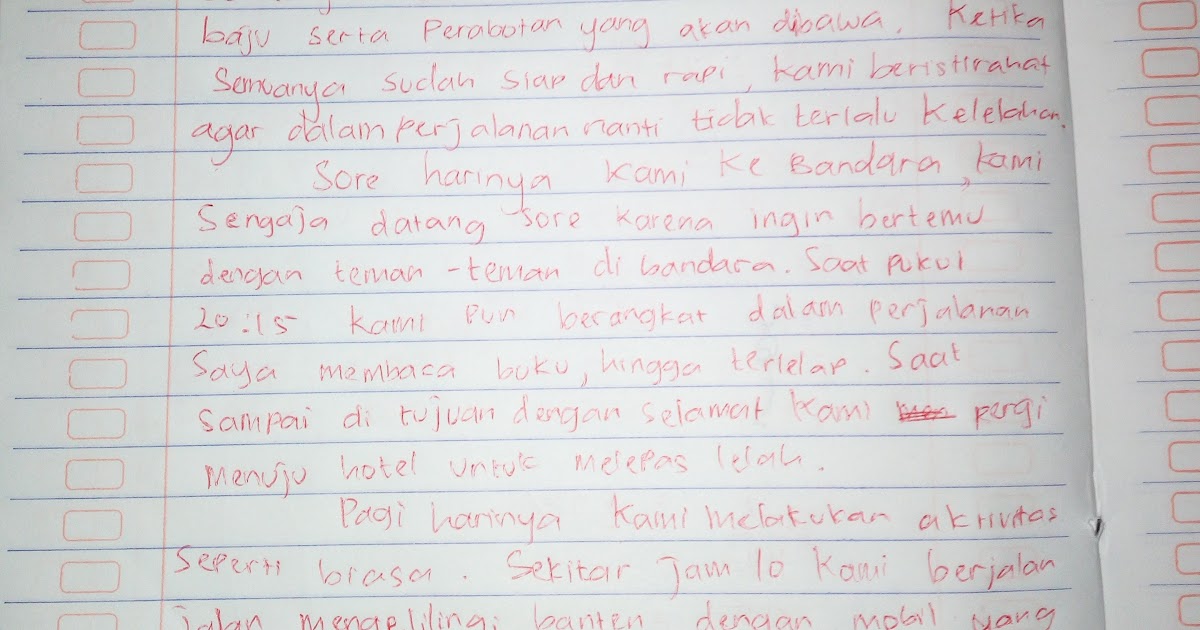 baju serta Perabotan yang akan dibawa. Ketika
Semuanya sudah siap dan rapi, kami beristirahat
agar dalam perjalanan nanti tidak terlalu Kelelahan.
Sore harinya kami ke Bandara, kami
Sengaja datang sore karena ingin bertemu
dengan teman-teman di bandara. Saat pukul
20:15 kami pun berangkat dalam perjalanan
Saya membaca buku, hingga terlelap. Saat
sampai di tujuan dengan selamat kami pergi
menuju hotel untuk melepas lelah.
Pagi harinya kami melakukan aktivitas
Seperti biasa. Sekitar jam 10 kami berjalan
jalan mengelilingi banten dengan mobil yang